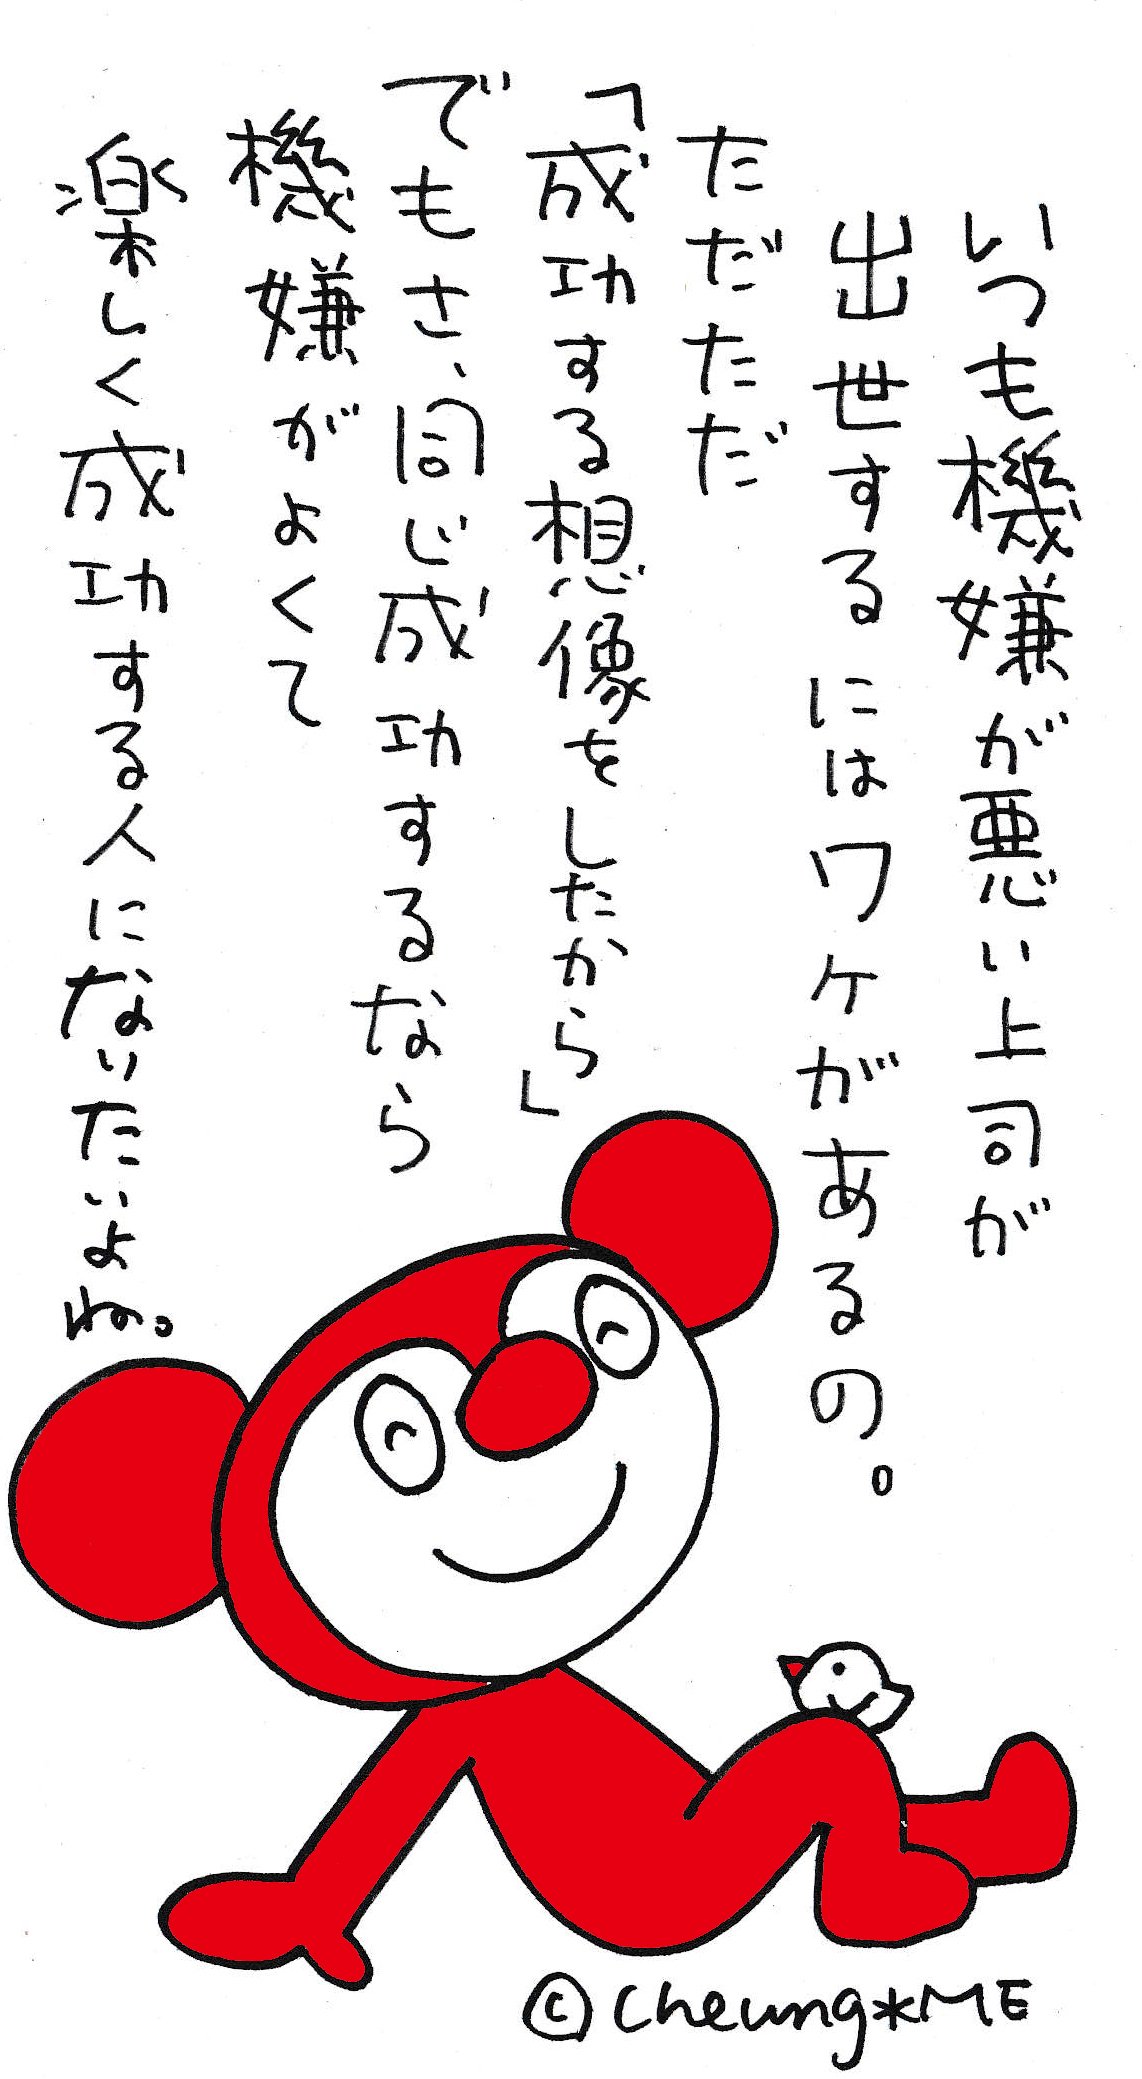 いつも機嫌が悪い上司が
出世するにはワケがあるの。
ただただ
「成功する想像をしたから」
でもさ、同じ成功するなら
機嫌がよくて
楽しく成功する人になりたいよね。
©Cheung*ME